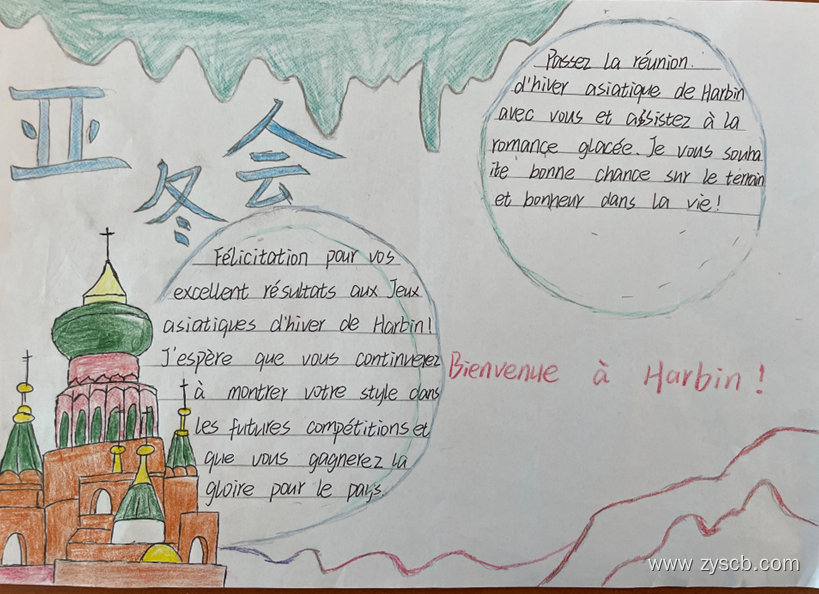 亚冬会
Passez la réunion
d'hiver asiatique de Harbin
avec vous et assistez à la
romance glacée. Je vous souha
ite bonne chance sur le terrain
et bonheur dans la vie!
Félicitation pour vos
excellent résultats aux Jeux
asiatiques d'hiver de Harbin!
J'espère que vous continuerez
à montrer votre style dans
les futures compétitions et
que vous gagnerez la
gloire pour le pays.
Bienvenue à Harbin!
www.zyscb.com